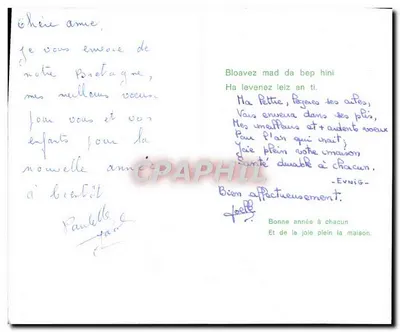 Chère amie,
Je vous envoie de
notre Bretagne,
mes meilleurs voeux
pour vous et vos
enfants pour la
nouvelle année
à bientôt
Paulette
Bloavez mad da bep hini
Ha lavenez leiz an ti.
Ma lettre, légère ses ailes,
Vous envoie dans ses plis,
Mes meilleurs et + ardents voeux
Pour l'an qui vient,
Joie plein votre maison
Santé durable à chacun.
Bien affectueusement.
Joëlle
Bonne année à chacun
Et de la joie plein la maison.
GRAPHIL